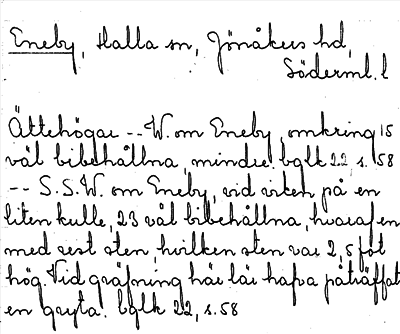 Eneby, Halla sn, Jönåkers hd,
Söderml. l
Ättehögar -- W. om Eneby, omkring 15
väl bibehållna, mindre. bglk 22 s. 58
-- S.S.W. om Eneby, vid viken på en
liten kulle, 23 väl bibehållna, hvaraf en
med rest sten, hvilken sten var 2,5 fot
hög. Vid gräfning här lär hafva påträffats
en gryta. bglk 22, s. 58